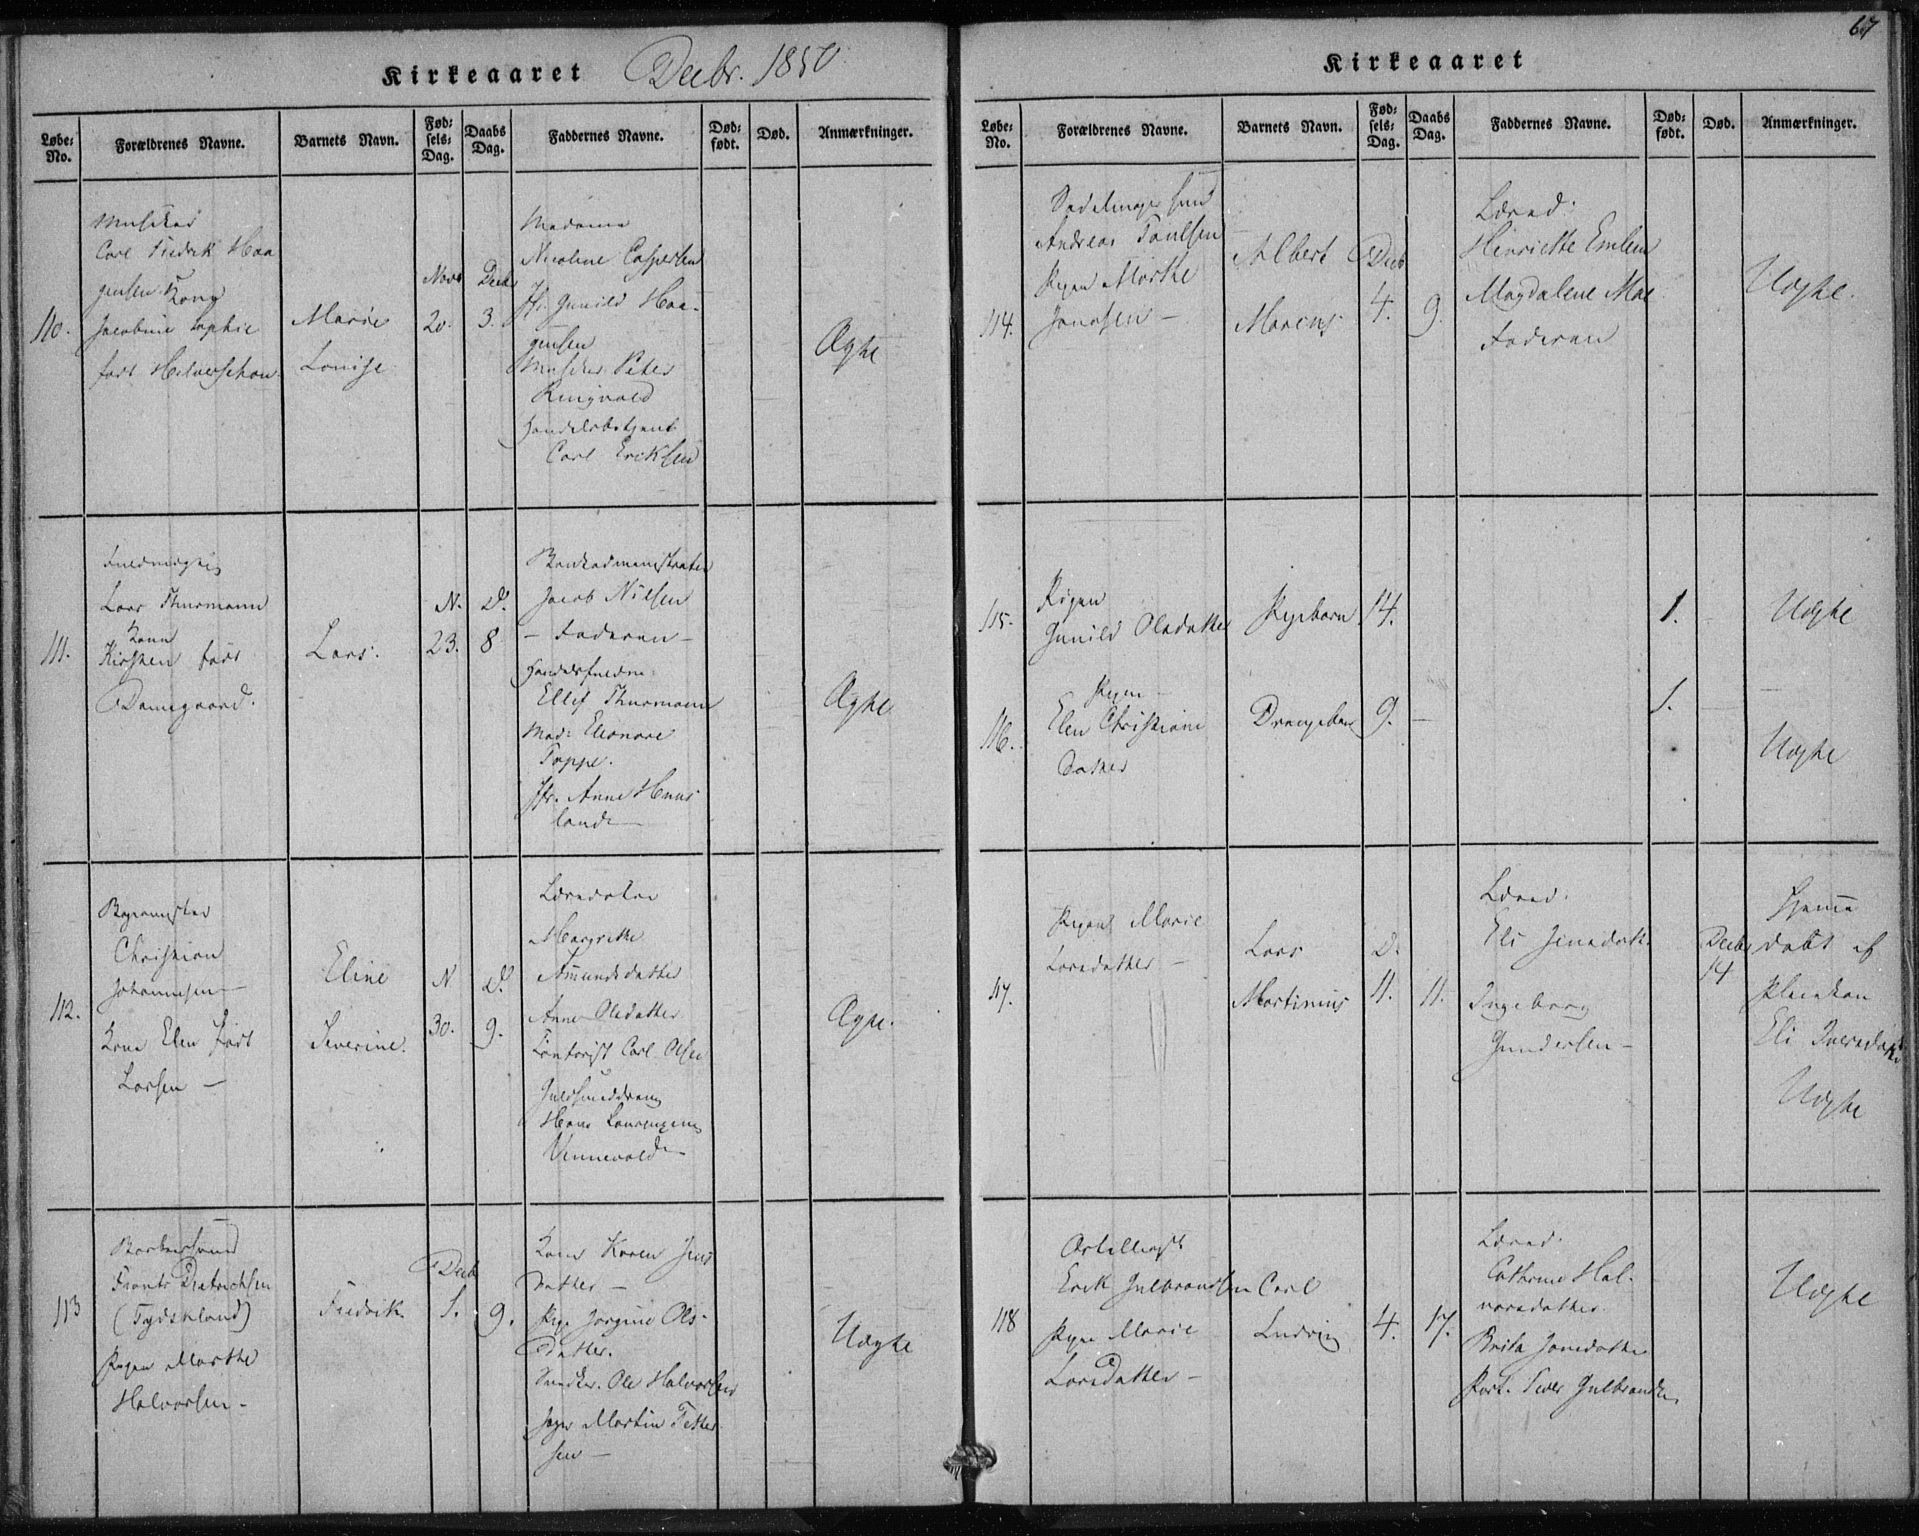 67
Kirkeaaret Decbr. 1850
Løbe-No. Forældrenes Navne. Barnets Navn. Fødsels-Dag. Daabs Dag. Faddernes Navne. Dødfødt. Død. Anmærkninger.
110.
Musiker
Carl Fredrik Haa
gensen Kone
Jacobine Sophie
født
Marie
Louise
Novb
20.
Decbr
3.
Madame
Nicoline Caspersen
Jfr. Gunild Haa-
gensen
Musiker Peter
Ringvold
Handelsbetjent
Carl Eriksen
Ægte
111.
Fuldmægtig
Lars Thurmann
Kone
Kirsten født
Damegaard.
Lars.
N.
23.
D.
8
Bankadministrator
Jacob Nielsen
- Faderen -
Handelsfuldm.
Ellef Thurmann
Mad. Eleonore
Toppe.
Jfr. Anne Huus
land
Ægte
112.
Christian
Johannesen
Kone Elen født
Larsen -
Eline
Severine.
N
30.
D.
9.
Margrethe
Amundsdatter
Anne Olsdatter
Carl Olsen
Guldsmeddreng
Hans
Vennevold
Ægte.
113
Frants Dietrichsen
(Tydskland)
Pigen Marthe
Halvorsen -
Fredrik
Decb
1.
9.
Kone Karen Jens
datter -
Pige Jørgine Ols-
datter.
Snedker. Ole Halvorsen
Martin Petter
sen -
Uægte
Kirkeaaret
Løbe-No. Forældrenes Navne. Barnets Navn. Fødsels-Dag. Daabs Dag. Faddernes Navne. Dødfødt. Død. Anmærkninger.
114.
Sadelmager svend
Andreas Paulsen
Pigen Marthe
Albert
Marcus
Decb
4.
9.
Henriette Emlem
Magdalene Moe
Faderen
Uægte.
115.
Pigen
Gunild Olsdatter
Pigebarn
14.
1.
Uægte
116.
Pigen
Elen Christians
datter
Drengebarn
9.
-
1.
Uægte
117.
Pigen Marie
Larsdatter -
Lars
Martinius
D.
11.
11.
Ingeborg
Gundersen -
Decbr
14
Hjemme
døbt af
Eli Iversdatter
Uægte
118
Artillerist
Erik Gulbrandsen
Pigen Marie
Larsdatter -
Carl
Ludvig
4.
17.
Cathrine Hal-
vorsdatter.
Brita
Uægte